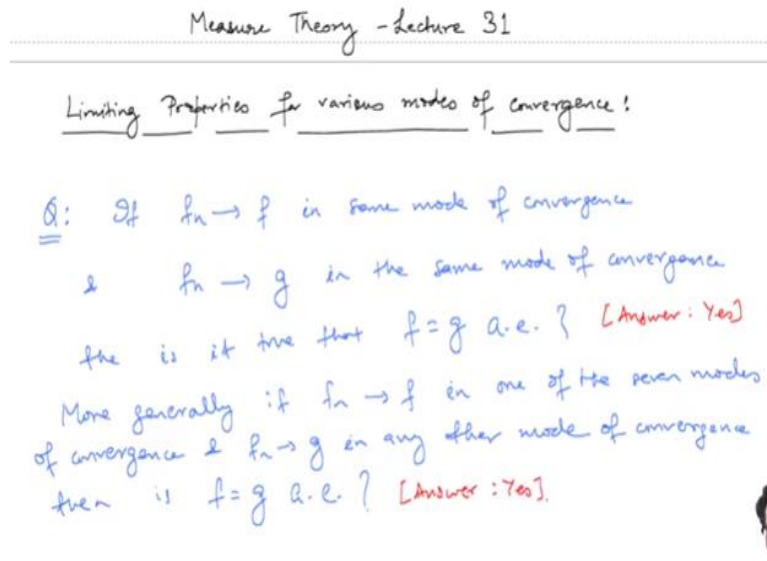 Measure Theory - Lecture 31
Limiting Properties for various modes of convergence:
Q: If fn → f in some mode of convergence
& fn → g in the same mode of convergence
the is it true that f = g a.e. ? [Answer: Yes]
More generally if fn → f in one of the seven modes
of convergence & fn → g in any other mode of convergence
then is f = g a.e. ? [Answer: Yes].